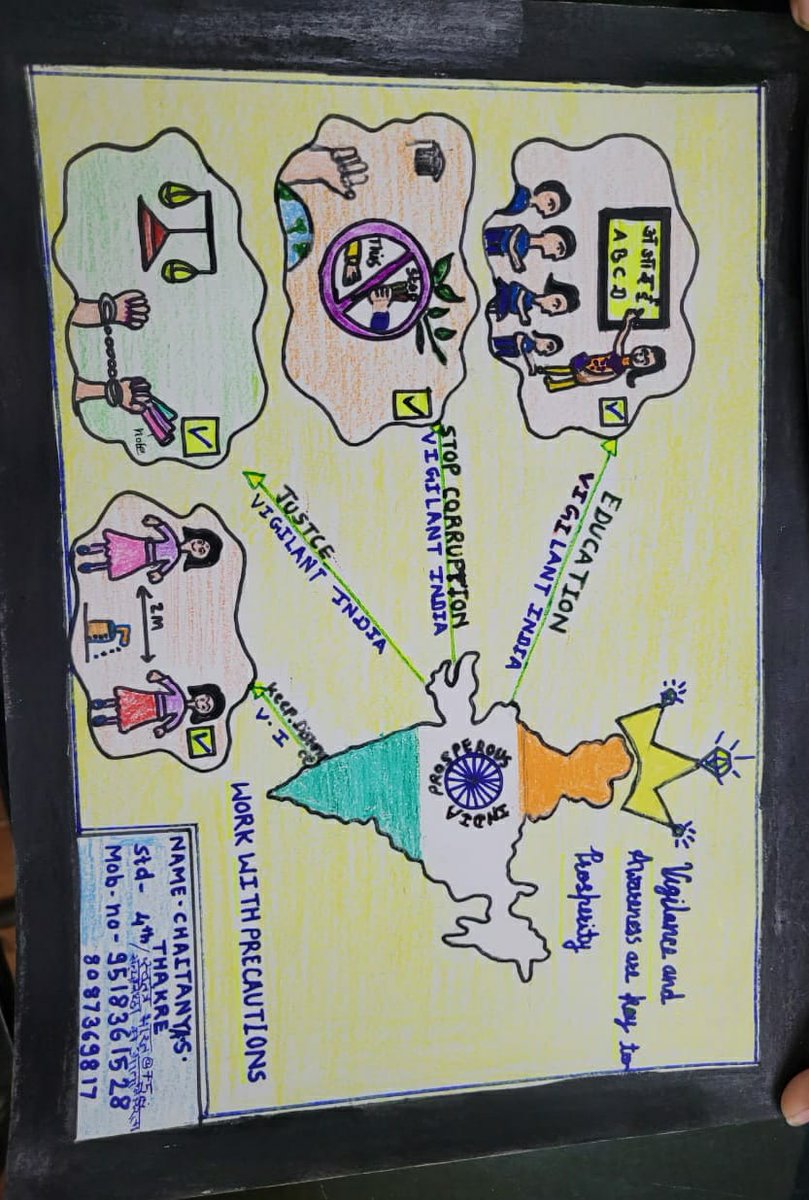 अ आ इ ई
A B C D
EDUCATION
VIGILANT INDIA
STOP
THIS
STOP CORRUPTION
VIGILANT INDIA
note
JUSTCE
VIGILANT INDIA
2M
keep.
V.I
PROSPEROUS
INDIA
Vigilance and
Awareness are key to
Prosperity
WORK WITH PRECAUTIONS
NAME-CHAITANYA.S.
THAKRE
Std- 4th/
Mob.no-9518361528
8087369817